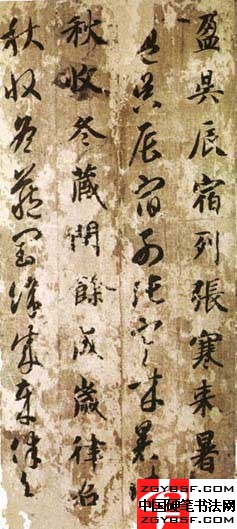 盈昃辰宿列張寒来暑
昃辰宿列張寒来暑
秋收冬藏閏餘成歲律召
秋收冬藏閏餘成歲律
ZGYBSF.COM
中国硬笔书法网
ZGYBSF.COM